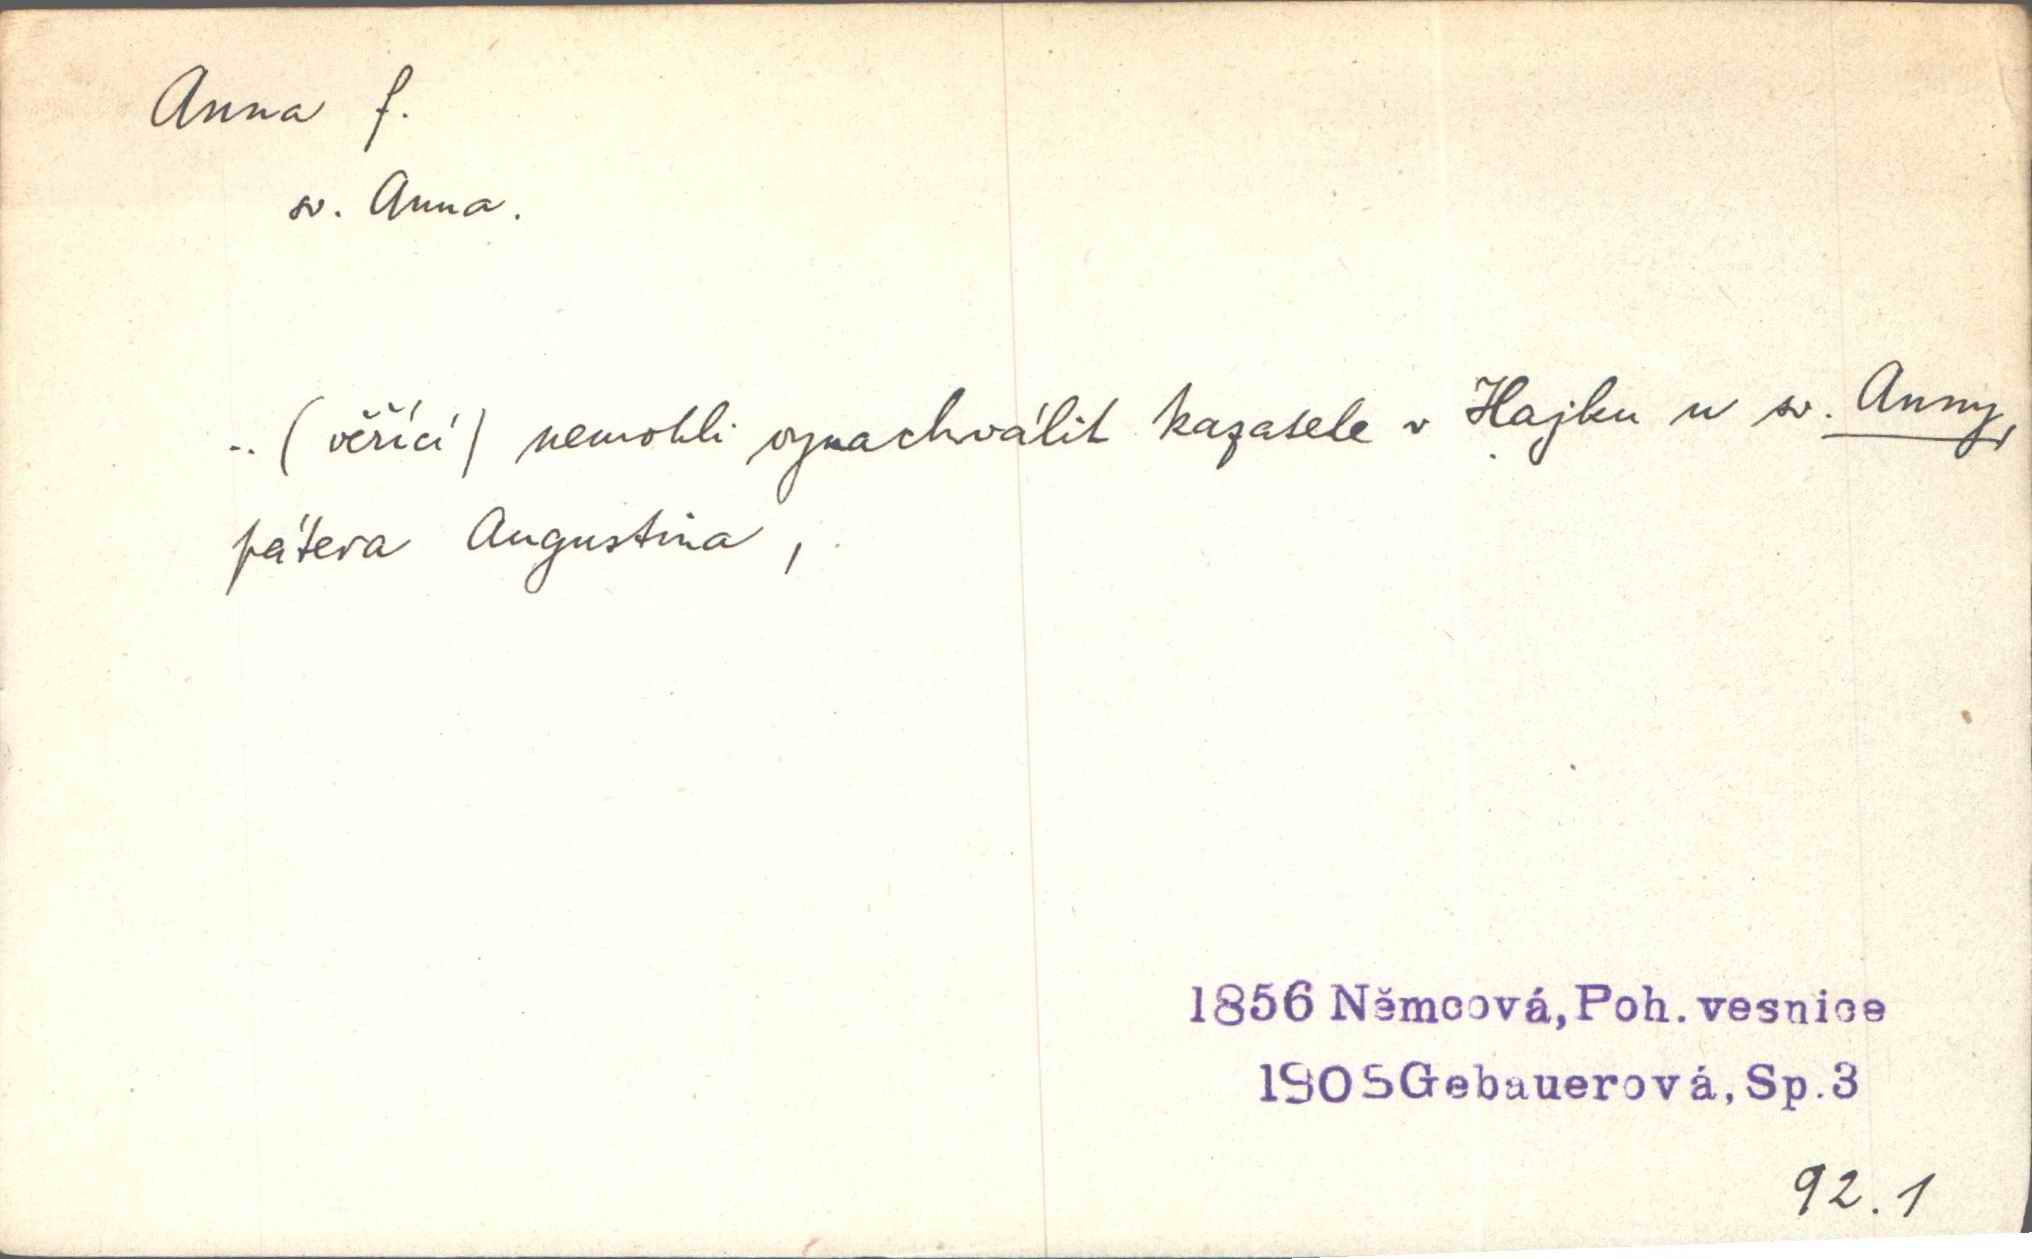 Anna f.
sv. Anna.
.. (věřící) nemohli vynachválit kazatele v Hajku u sv. Anny,
pátera Augustina,
1856 Němcová, Poh. vesnice
1905 Gebauerová, Sp.3
92.1